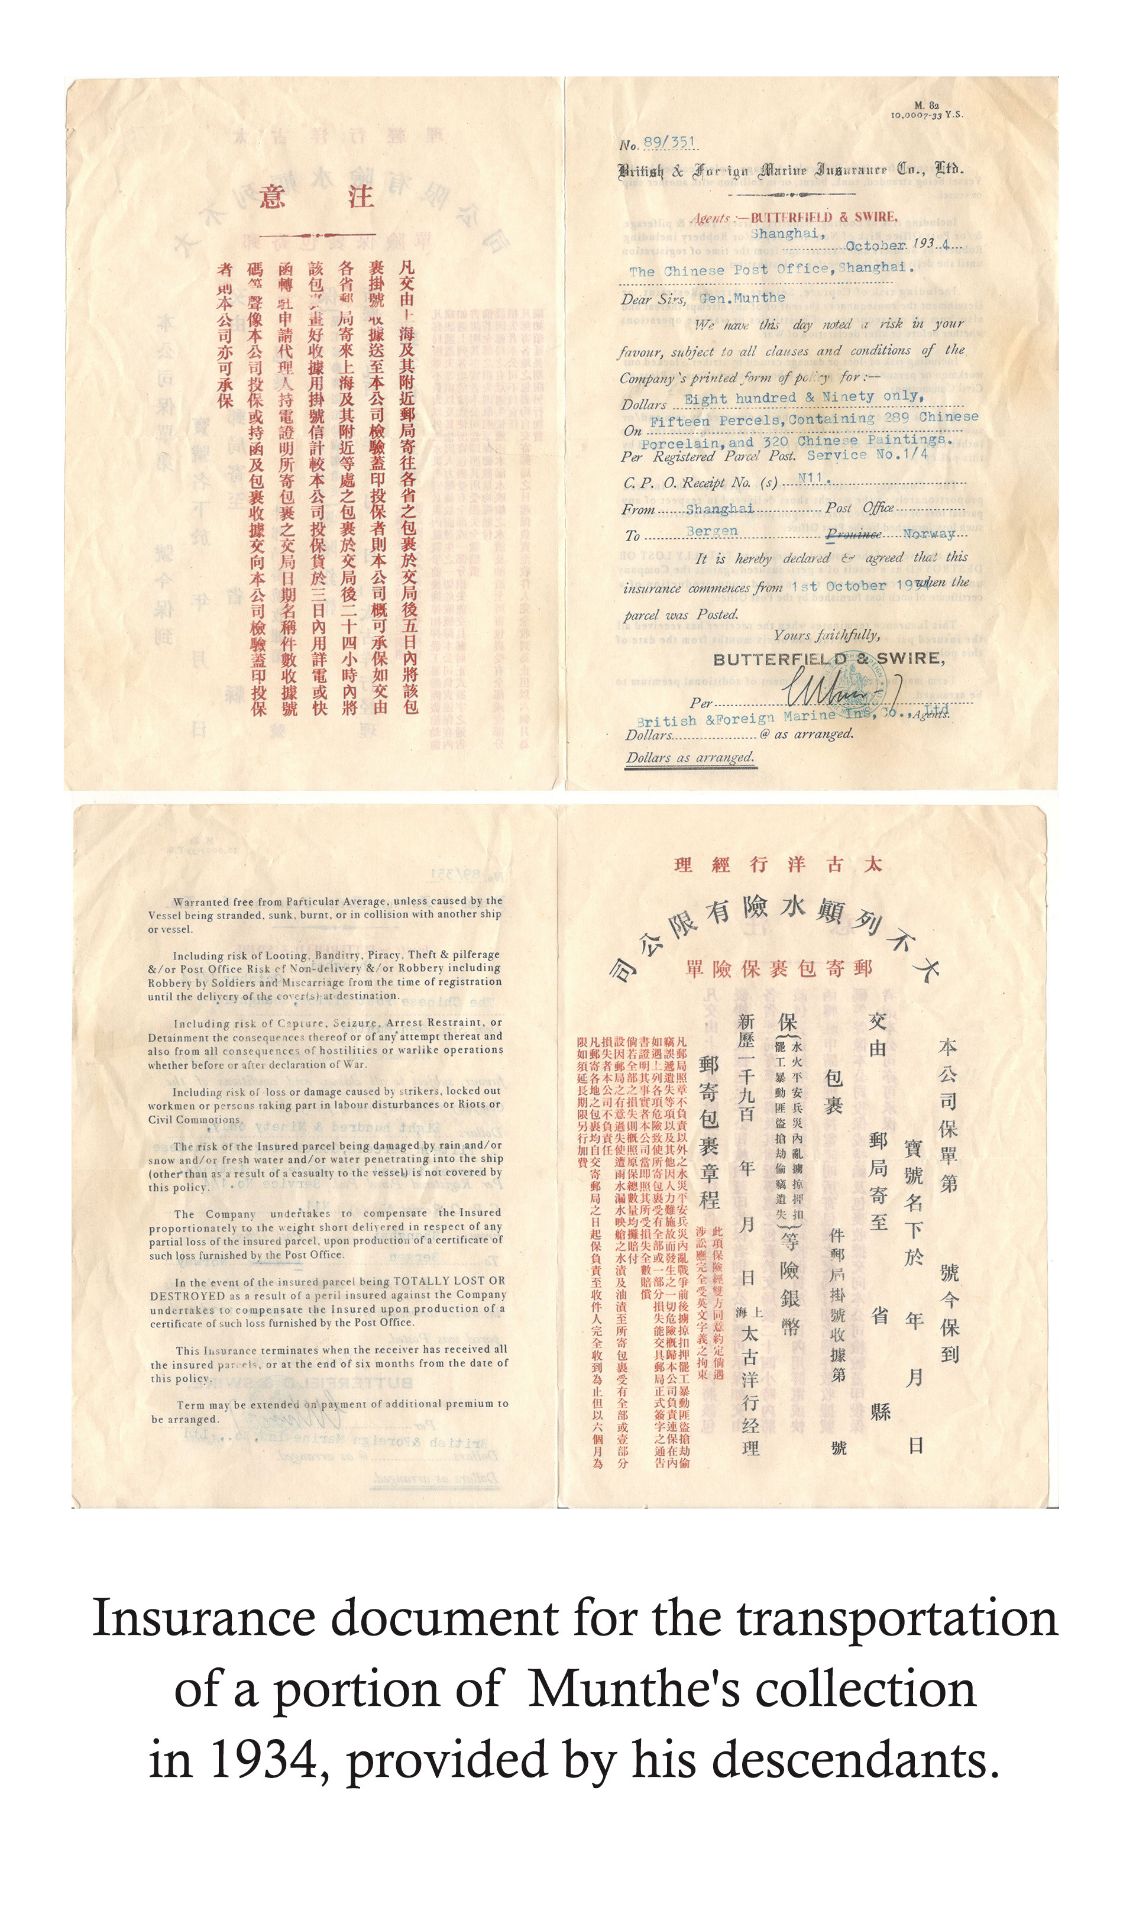 注意
凡交由上海及其附近郵局寄往各省之包裹於交局後五日內將該包
裹掛號收據送至本公司檢驗蓋印投保者則本公司概可承保如交由
各省郵局寄來上海及其附近等處之包裹於交局後二十四小時內將
該包裹畫好收據用掛號信計較本公司投保貨於三日內用詳電或快
函轉駐申請代理人持電證明所寄包裹之交局日期名稱件數收據號
碼等聲像本公司投保或持函及包裹收據交向本公司檢驗蓋印投保
者則本公司亦可承保
M. 82
10,0007-33 Y.S.
No. 89/351
British & Foreign Marine Insurance Co., Ltd.
Agents :—BUTTERFIELD & SWIRE,
Shanghai,
October 1934
The Chinese Post Office, Shanghai.
Dear Sirs, Gen.Munthe
We have this day noted a risk in your
favour, subject to all clauses and conditions of the
Company's printed form of policy for :—
Dollars Eight hundred & Ninety only,
On Fifteen Percels, Containing 289 Chinese
Porcelain, and 320 Chinese Paintings.
Per Registered Parcel Post. Service No.1/4
C. P. O. Receipt No. (s) N11.
From Shanghai Post Office
To Bergen Province Norway
It is hereby declared & agreed that this
insurance commences from 1st October 1934 when the
parcel was Posted.
Yours faithfully,
BUTTERFIELD & SWIRE,
Per
British &Foreign Marine Ins, Co., Ltd Agents.
Dollars @ as arranged.
Dollars as arranged.
Warranted free from Particular Average, unless caused by the
Vessel being stranded, sunk, burnt, or in collision with another ship
or vessel.
Including risk of Looting, Banditry, Piracy, Theft & pilferage
&/or Post Office Risk of Non-delivery &/or Robbery including
Robbery by Soldiers and Miscarriage from the time of registration
until the delivery of the cover(s) at destination.
Including risk of Capture, Seizure, Arrest Restraint, or
Detainment the consequences thereof or of any attempt thereat and
also from all consequences of hostilities or warlike operations
whether before or after declaration of War.
Including risk of loss or damage caused by strikers, locked out
workmen or persons taking part in labour disturbances or Riots or
Civil Commotions.
The risk of the Insured parcel being damaged by rain and/or
snow and/or fresh water and/or water penetrating into the ship
(other than as a result of a casualty to the vessel) is not covered by
this policy.
The Company undertakes to compensate the Insured
proportionately to the weight short delivered in respect of any
partial loss of the insured parcel, upon production of a certificate of
such loss furnished by the Post Office.
In the event of the insured parcel being TOTALLY LOST OR
DESTROYED as a result of a peril insured against the Company
undertakes to compensate the Insured upon production of a
certificate of such loss furnished by the Post Office.
This Insurance terminates when the receiver has received all
the insured parcels, or at the end of six months from the date of
this policy.
Term may be extended on payment of additional premium to
be arranged.
太古洋行經理
大不列顚水險有限公司
郵寄包裹保險單
本公司保單第 號今保到
寶號名下於 年 月 日
交由 郵局寄至 省 縣
包裹 件郵局掛號收據第 號
保(水火平安兵災內亂擄掠押扣
罷工暴動匪盜搶劫偷竊遺失)等險銀幣
新歷一千九百 年 月 日 上海太古洋行经理
郵寄包裹章程
此項保險經雙方同意約定倘遇
涉訟應完全受英文字義之拘束
凡郵局照章不負責以外之水災平安兵災內亂戰爭前後擄掠扣押罷工暴動匪盜搶劫偷
竊誤遞遺失等項以及其他因人力難施故而發生之一切危險概歸本公司負責連保在內
如遇上列各項危險致使所寄包裹受有全部或一部分損失能交具郵局正式簽字之通告
書證明其事實者本公司當即照其所受損失全數賠償
倘若全部之損失則概照原保總數量均攤賠付
設因郵局之有意過失使遭雨水漏水映艙之水漬及油漬至所寄包裹受有全部或壹部分
損失者本公司不負責任
凡郵寄各地之包裹均自交寄郵局之日起保負責至收件人完全收到為止但以六個月為
限如須延長期限另行加費
Insurance document for the transportation
of a portion of Munthe's collection
in 1934, provided by his descendants.